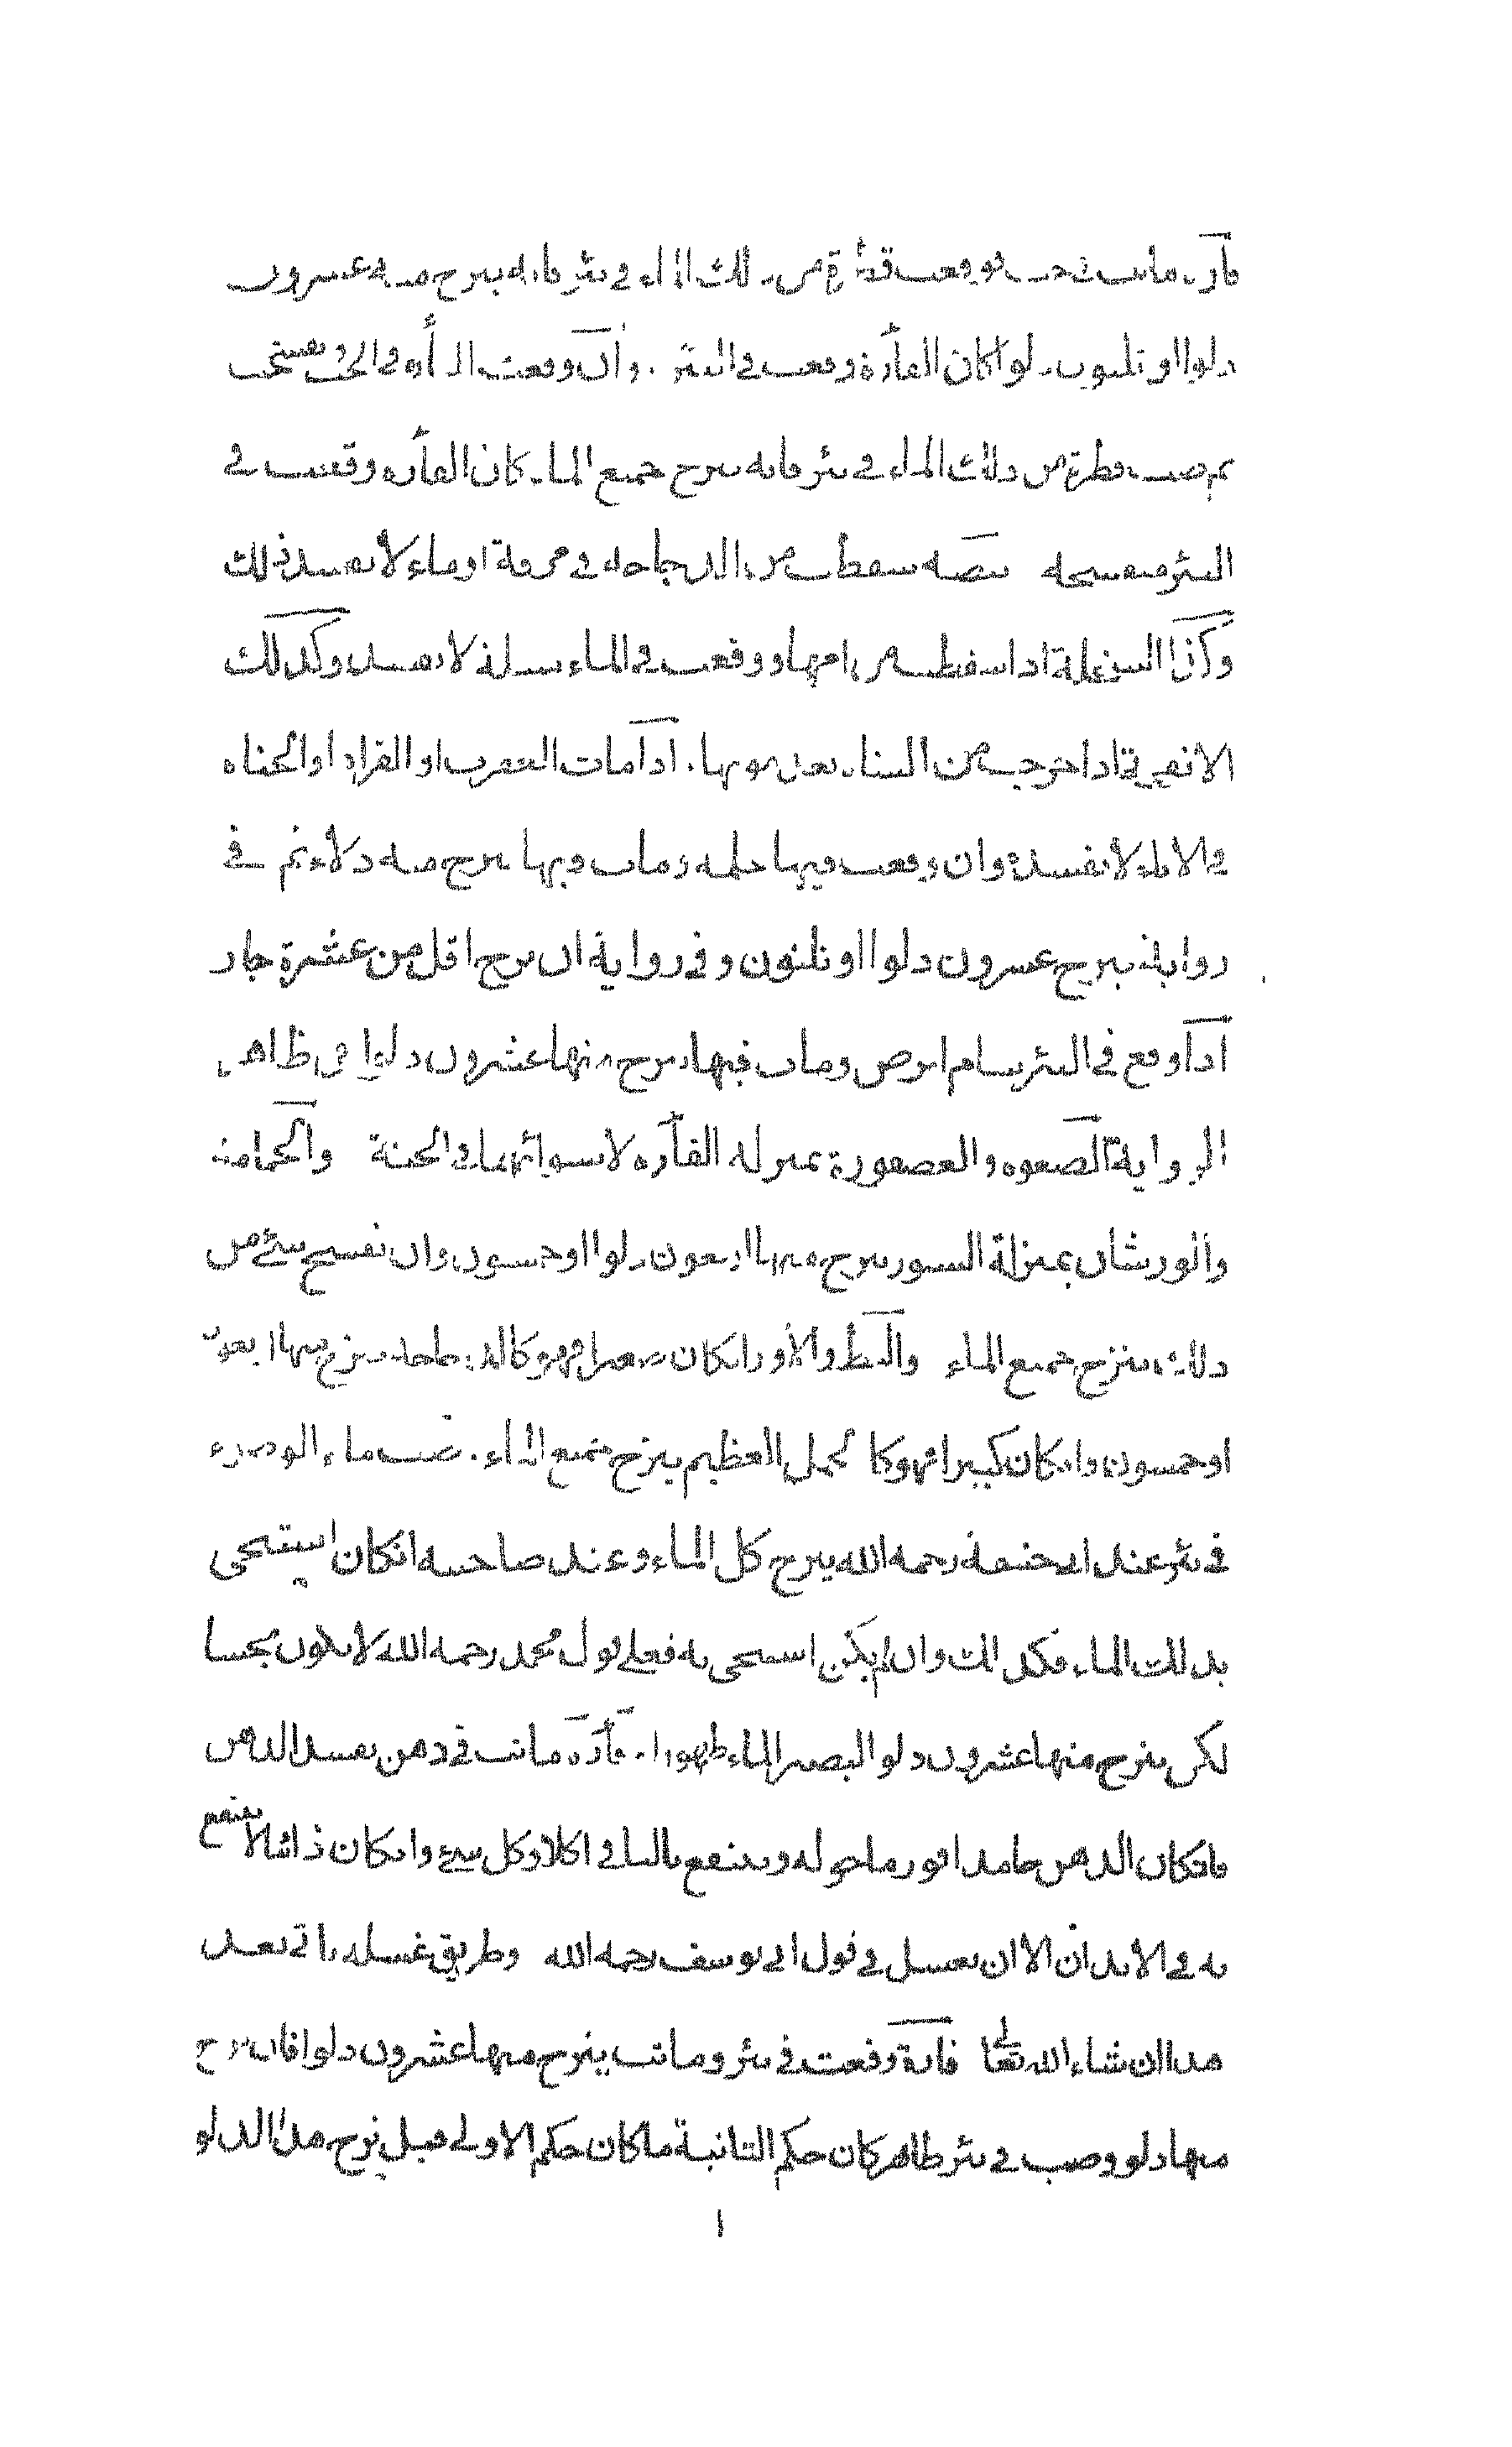 فأرة ماتت في حب فوقعت قطرة من ذلك الماء في بئر فانه ينزح منه عشرون
دلوا او ثلثون لو كان الفأرة وقعت في البئر . وان وقعت الفأرة في الحب وتفسخت
ثم صب قطرة من ذلك الماء في بئر فانه ينزح جميع الماء كان الفأرة وقعت في
البئر متفسخة بيضة سقطت من الدجاجة في مرقة او ماء لا يفسد ذلك
وكذا السخلة اذا سقطت من امها ووقعت في الماء مبتلة لا يفسد وكذلك
الانفحة اذا خرجت من الشاة بعد موتها . اذا مات العقرب او القراد او الخنفساء
في الاناء لا يفسده وان وقعت فيها حلمة وماتت فيها ينزح منه دلاء ثم في
رواية ينزح عشرون دلوا او ثلثون وفي رواية ان نزح اقل من عشرة جاز
اذا وقع في البئر سام ابرص ومات فيها ينزح منها عشرون دلوا في ظاهر
الرواية الصعوة والعصفورة بمنزلة الفأرة لاستوائهما في الجثة والحمامة
والورشان بمنزلة السنور ينزح منها اربعون دلوا او خمسون وان تفسخ شئ من
ذلك ينزح جميع الماء والبط والاوز ان كان صغيرا فهو كالدجاجة ينزح منها اربعون
او خمسون وان كان كبيرا فهو كالجمل العظيم ينزح جميع الماء . صب ماء الوضوء
في بئر عند ابي حنيفة رحمه الله ينزح كل الماء وعند صاحبيه ان كان استنجى
بذلك الماء فكذلك وان لم يكن استنجى به فعلى قول محمد رحمه الله لا يكون نجسا
لكن ينزح منها عشرون دلوا ليصير الماء طهورا . فأرة ماتت في دهن يفسد الدهن
فان كان الدهن جامدا قور ما حوله وينتفع بالباقي اكلا وكل شئ وان كان ذائبا لا ينتفع
به في الابدان الا ان يغسل في قول ابي يوسف رحمه الله وطريق غسله يأتي بعد
هذا ان شاء الله تعالى فأرة وقعت في بئر وماتت ينزح منها عشرون دلوا فان نزح
منها دلو وصب في بئر طاهر كان حكم الثانية ما كان حكم الاولى قبل نزح هذا الدلو
١